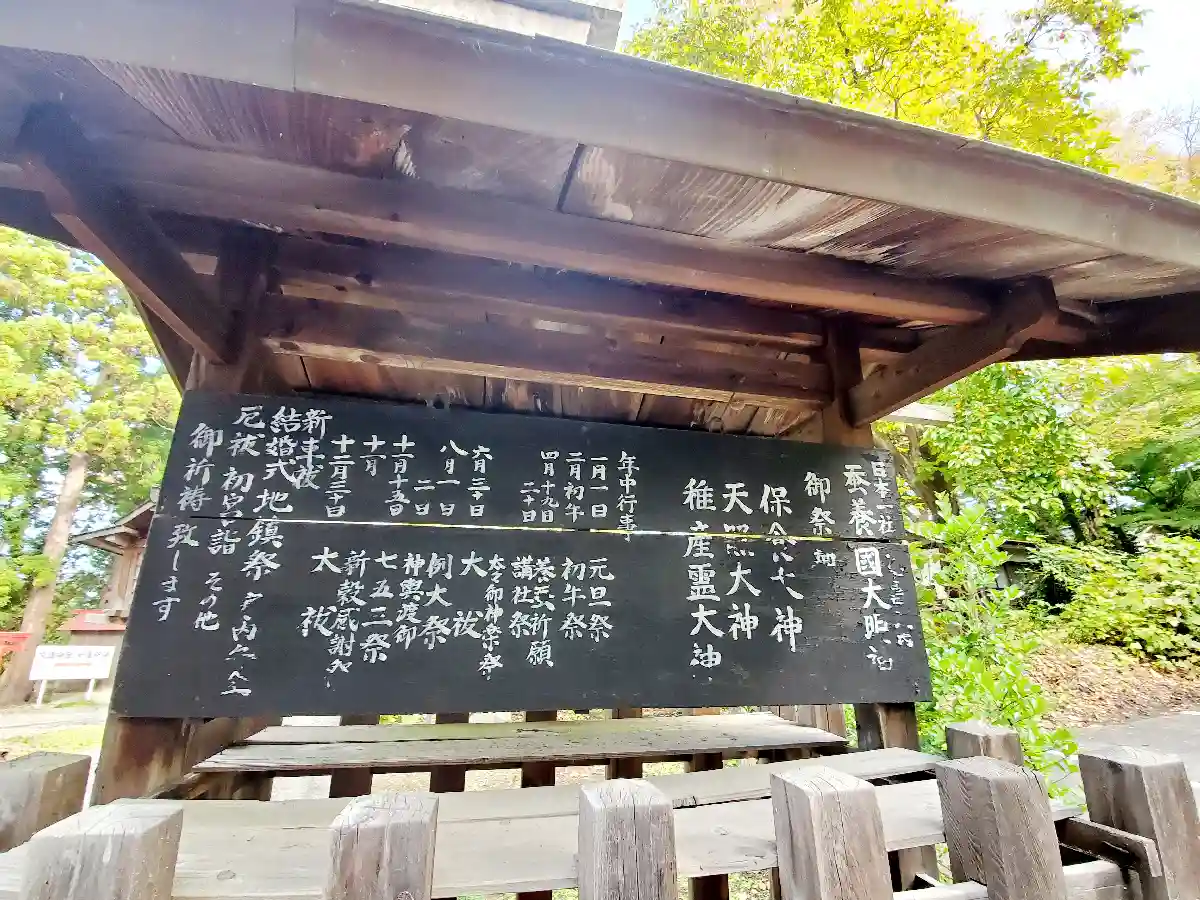 日本一社
蚕養國
御祭神
保食大神
天照大神
稚産霊大神
年中行事
一月一日 元旦祭
二月初午 初午祭
四月十九日 祈願
二十日 講社祭
太々御神楽祭
六月三十日 大祓
八月一日 例大祭
二日 神輿渡御
十一月十五日 七五三祭
十一月 新穀感謝
十二月三十日 大祓
新車祓
結婚式地鎮祭
厄祓 初宮詣 その他
御祈祷 致します